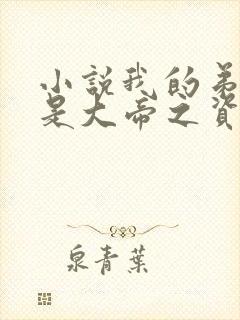 小說我的弟
是大帝之資
泉青葉